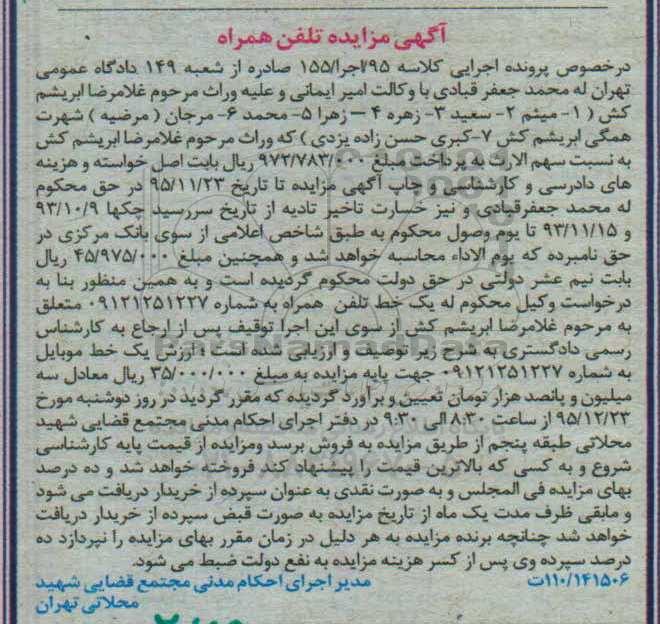 آگهی مزایده تلفن همراه
درخصوص پرونده اجرایی کلاسه ۹۵/اجرا/۱۵۵ صادره از شعبه ۱۴۹ دادگاه عمومی
تهران له محمد جعفر قبادی با وکالت امیر ایمانی و علیه وراث مرحوم غلامرضا ابریشم
کش ( ۱- میثم ۲- سعید ۳- زهره ۴ – زهرا ۵- محمد ۶- مرجان ( مرضیه ) شهرت
همگی ابریشم کش ۷-کبری حسن زاده یزدی ) که وراث مرحوم غلامرضا ابریشم کش
به نسبت سهم الارث به پرداخت مبلغ ۹۷۲/۷۸۳/۰۰۰ ریال بابت اصل خواسته و هزینه
های دادرسی و کارشناسی و چاپ آگهی مزایده تا تاریخ ۹۵/۱۱/۲۳ در حق محکوم
له محمد جعفرقبادی و نیز خسارت تاخیر تادیه از تاریخ سررسید چکها ۹۳/۱۰/۹
و ۹۳/۱۱/۱۵ تا یوم وصول محکوم به طبق شاخص اعلامی از سوی بانک مرکزی در
حق نامبرده که یوم الاداء محاسبه خواهد شد و همچنین مبلغ ۴۵/۹۷۵/۰۰۰ ریال
بابت نیم عشر دولتی در حق دولت محکوم گردیده است و به همین منظور بنا به
درخواست وکیل محکوم له یک خط تلفن همراه به شماره ۰۹۱۲۱۲۵۱۲۲۷ متعلق
به مرحوم غلامرضا ابریشم کش از سوی این اجرا توقیف پس از ارجاع به کارشناس
رسمی دادگستری به شرح زیر توصیف و ارزیابی شده است : ارزش یک خط موبایل
به شماره ۰۹۱۲۱۲۵۱۲۲۷ جهت پایه مزایده به مبلغ ۳۵/۰۰۰/۰۰۰ ریال معادل سه
میلیون و پانصد هزار تومان تعیین و برآورد گردیده که مقرر گردید در روز دوشنبه مورخ
۹۵/۱۲/۲۳ از ساعت ۸:۳۰ الی ۹:۳۰ در دفتر اجرای احکام مدنی مجتمع قضایی شهید
محلاتی طبقه پنجم از طریق مزایده به فروش برسد ومزایده از قیمت پایه کارشناسی
شروع و به کسی که بالاترین قیمت را پیشنهاد کند فروخته خواهد شد و ده درصد
بهای مزایده فی المجلس و به صورت نقدی به عنوان سپرده از خریدار دریافت می شود
و مابقی ظرف مدت یک ماه از تاریخ مزایده به صورت قبض سپرده از خریدار دریافت
خواهد شد چنانچه برنده مزایده به هر دلیل در زمان مقرر بهای مزایده را نپردازد ده
درصد سپرده وی پس از کسر هزینه مزایده به نفع دولت ضبط می شود.
۱۱۰/۱۴۱۵۰۶ت مدیر اجرای احکام مدنی مجتمع قضایی شهید
محلاتی تهران
ParsNamadData